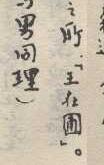 之所「王在圃」。
与男同理）